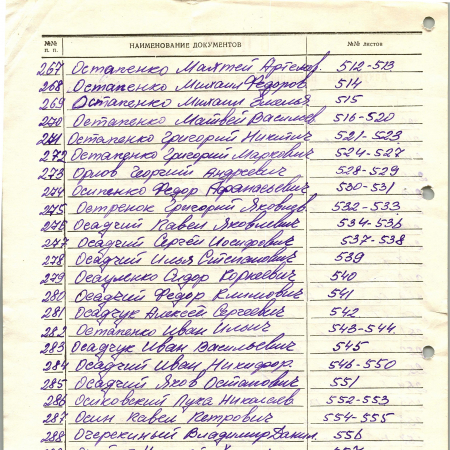 №№ п. п. НАИМЕНОВАНИЕ ДОКУМЕНТОВ №№ листов
267 Остапенко Мактей Артемов. 512-513
268 Остапенко Михаил Федоров. 514
269 Остапенко Михаил 515
270 Остапенко Матвей Василев 516-520
271 Остапенко Григорий Никитич 521-523
272 Остапенко Григорий Маркович 524-527
273 Орлов Георгий Андреевич 528-529
274 Осипенко Федор Афанасьевич 530-531
275 Остренок Григорий Яковлев. 532-533
276 Осадчий Павел Яковлевич 534-536
277 Осадчий Сергей Иосифович 537-538
278 Осадчий Илья Степанович 539
279 Осауленко Сидор Корнеевич 540
280 Осадчий Федор Климович 541
281 Осадчук Алексей Сергеевич 542
282 Остапенко Иван Ильич 543-544
283 Осадчук Иван Васильевич 545
284 Осадчий Иван Никифор. 546-550
285 Осадчий Яков Остапович 551
286 Осиковский Лука Николаев 552-553
287 Осин Павел Петрович 554-555
288 Очерекиный Владимир Данил. 556